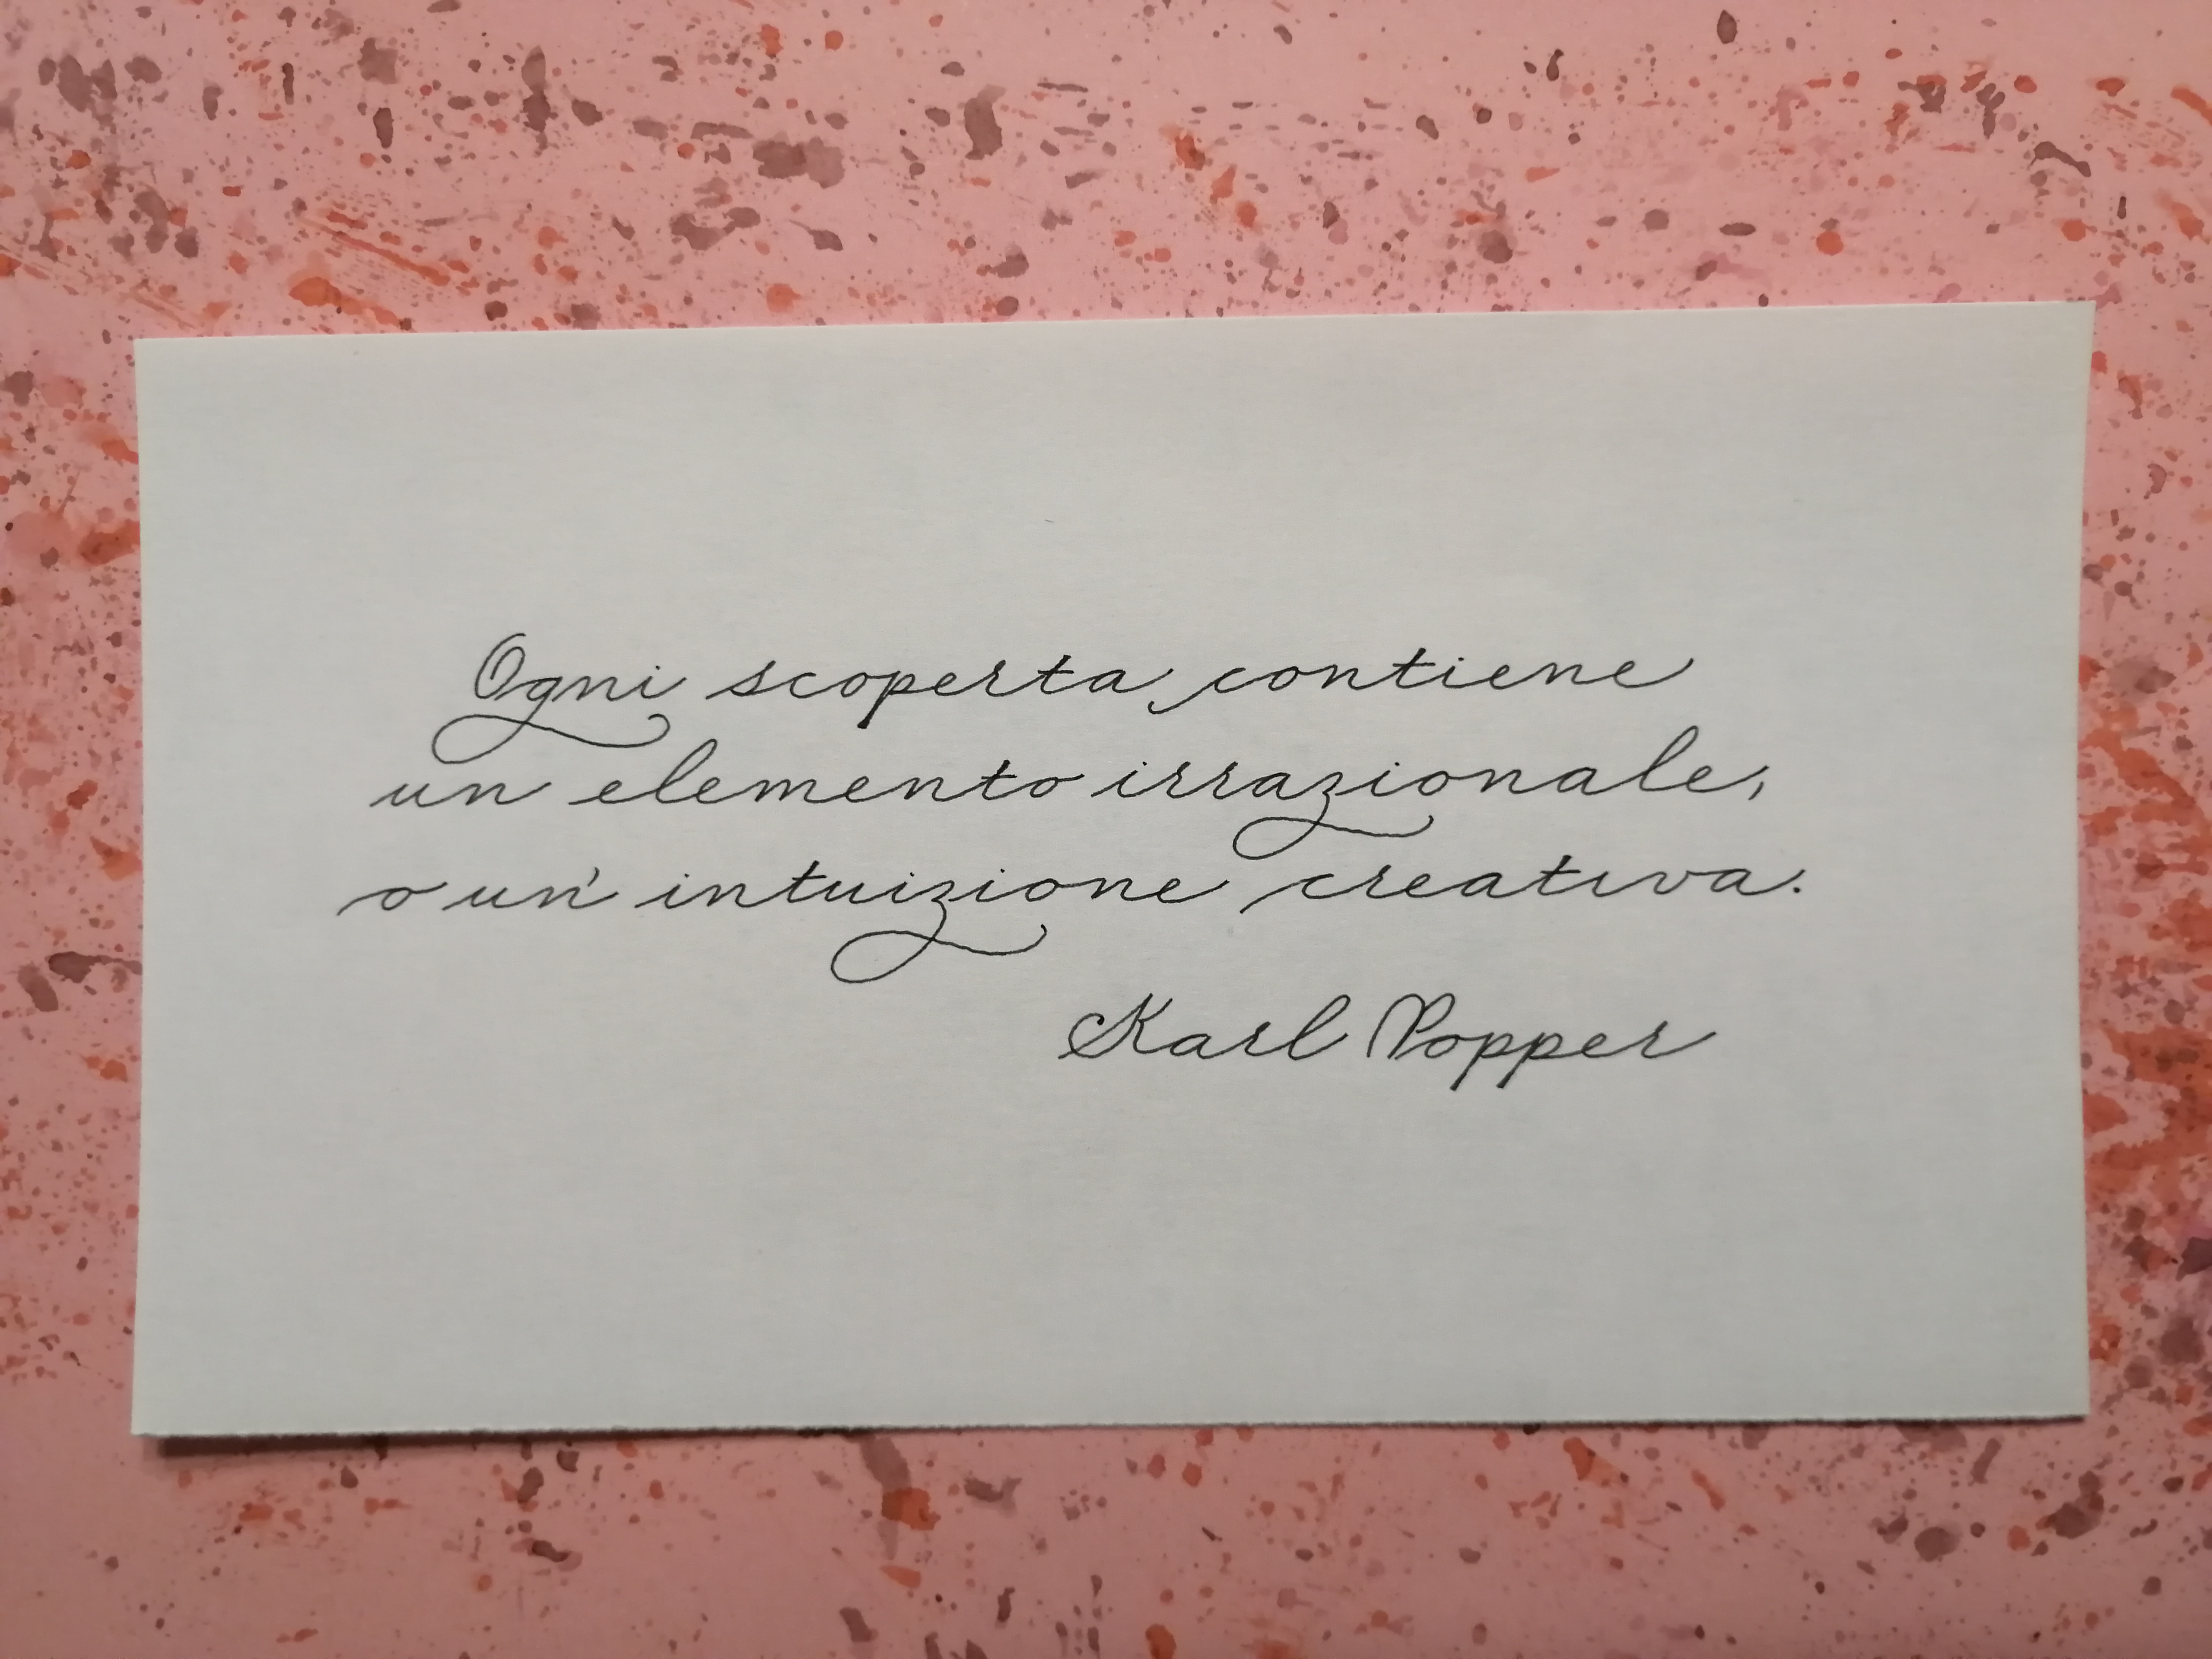 Ogni scoperta contiene
un elemento irrazionale,
o un' intuizione creativa.
Karl Popper